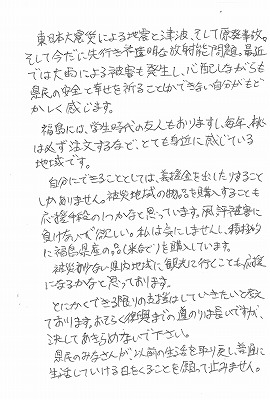 東日本大震災による地震と津波、そして原発事故。
そして今だに先行き不透明な放射能問題、最近
では大雨による被害も発生し、心配しながらも
県民の安全と幸せを祈ることしかできない自分がもど
かしく感じます。
福島には、学生時代の友人もおりますし、毎年、桃
は必ず注文するなど、とても身近に感じている
地域です。
自分にできることとしては、義援金を出したりすること
しかありません。被災地域の物品を購入することも
応援手段の1つかなと思っています。風評被害に
負けないで欲しい。私は気にしませんし、積極的
に福島県産の品(米など)を購入しています。
被災が少ない県内地域に観光に行くことも応援
になるかなと思っております。
とにかくできる限りの支援はしていきたいと考え
ております。おそらく復興までの道のりは長いですが、
決してあきらめないで下さい。
県民のみなさんが、以前の生活を取り戻し、普通に
生活していける日をくることを願って止みません。